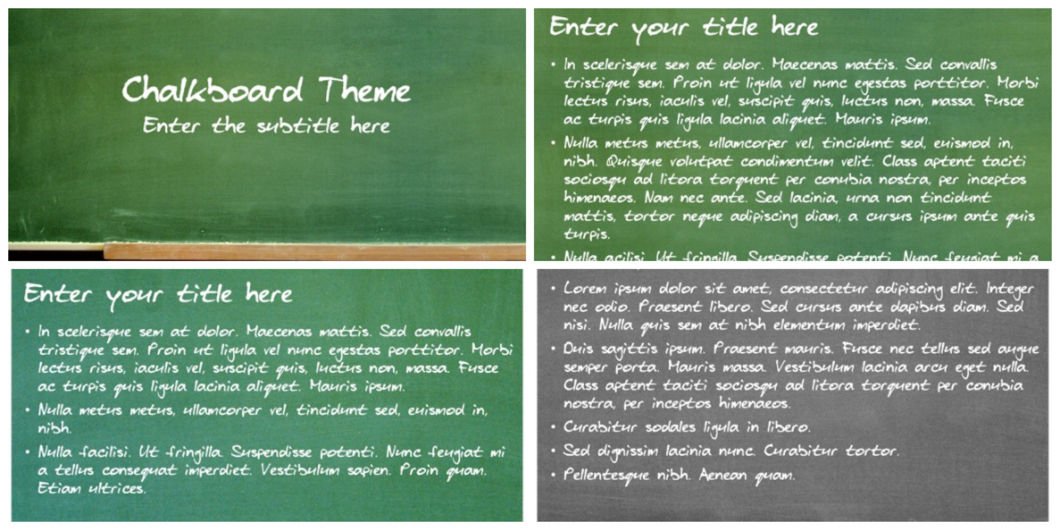 Chalkboard Theme
Enter the subtitle here
Enter your title here
• In scelerisque sem at dolor. Maecenas mattis. Sed convallis
tristique sem. Proin ut ligula vel nunc egestas porttitor. Morbi
lectus risus, iaculis vel, suscipit quis, luctus non, massa. Fusce
ac turpis quis ligula lacinia aliquet. Mauris ipsum.
• Nulla metus metus, ullamcorper vel, tincidunt sed, euismod in,
nibh. Quisque volutpat condimentum velit. Class aptent taciti
sociosqu ad litora torquent per conubia nostra, per inceptos
himenaeos. Nam nec ante. Sed lacinia, urna non tincidunt
mattis, tortor neque adipiscing diam, a cursus ipsum ante quis
turpis.
• Nulla facilisi. Ut fringilla. Suspendisse potenti. Nunc feugiat mi a
Enter your title here
• In scelerisque sem at dolor. Maecenas mattis. Sed convallis
tristique sem. Proin ut ligula vel nunc egestas porttitor. Morbi
lectus risus, iaculis vel, suscipit quis, luctus non, massa. Fusce
ac turpis quis ligula lacinia aliquet. Mauris ipsum.
• Nulla metus metus, ullamcorper vel, tincidunt sed, euismod in,
nibh.
• Nulla facilisi. Ut fringilla. Suspendisse potenti. Nunc feugiat mi
a tellus consequat imperdiet. Vestibulum sapien. Proin quam.
Etiam ultrices.
• Lorem ipsum dolor sit amet, consectetur adipiscing elit. Integer
nec odio. Praesent libero. Sed cursus ante dapibus diam. Sed
nisi. Nulla quis sem at nibh elementum imperdiet.
• Duis sagittis ipsum. Praesent mauris. Fusce nec tellus sed augue
semper porta. Mauris massa. Vestibulum lacinia arcu eget nulla.
Class aptent taciti sociosqu ad litora torquent per conubia
nostra, per inceptos himenaeos.
• Curabitur sodales ligula in libero.
• Sed dignissim lacinia nunc. Curabitur tortor.
• Pellentesque nibh. Aenean quam.